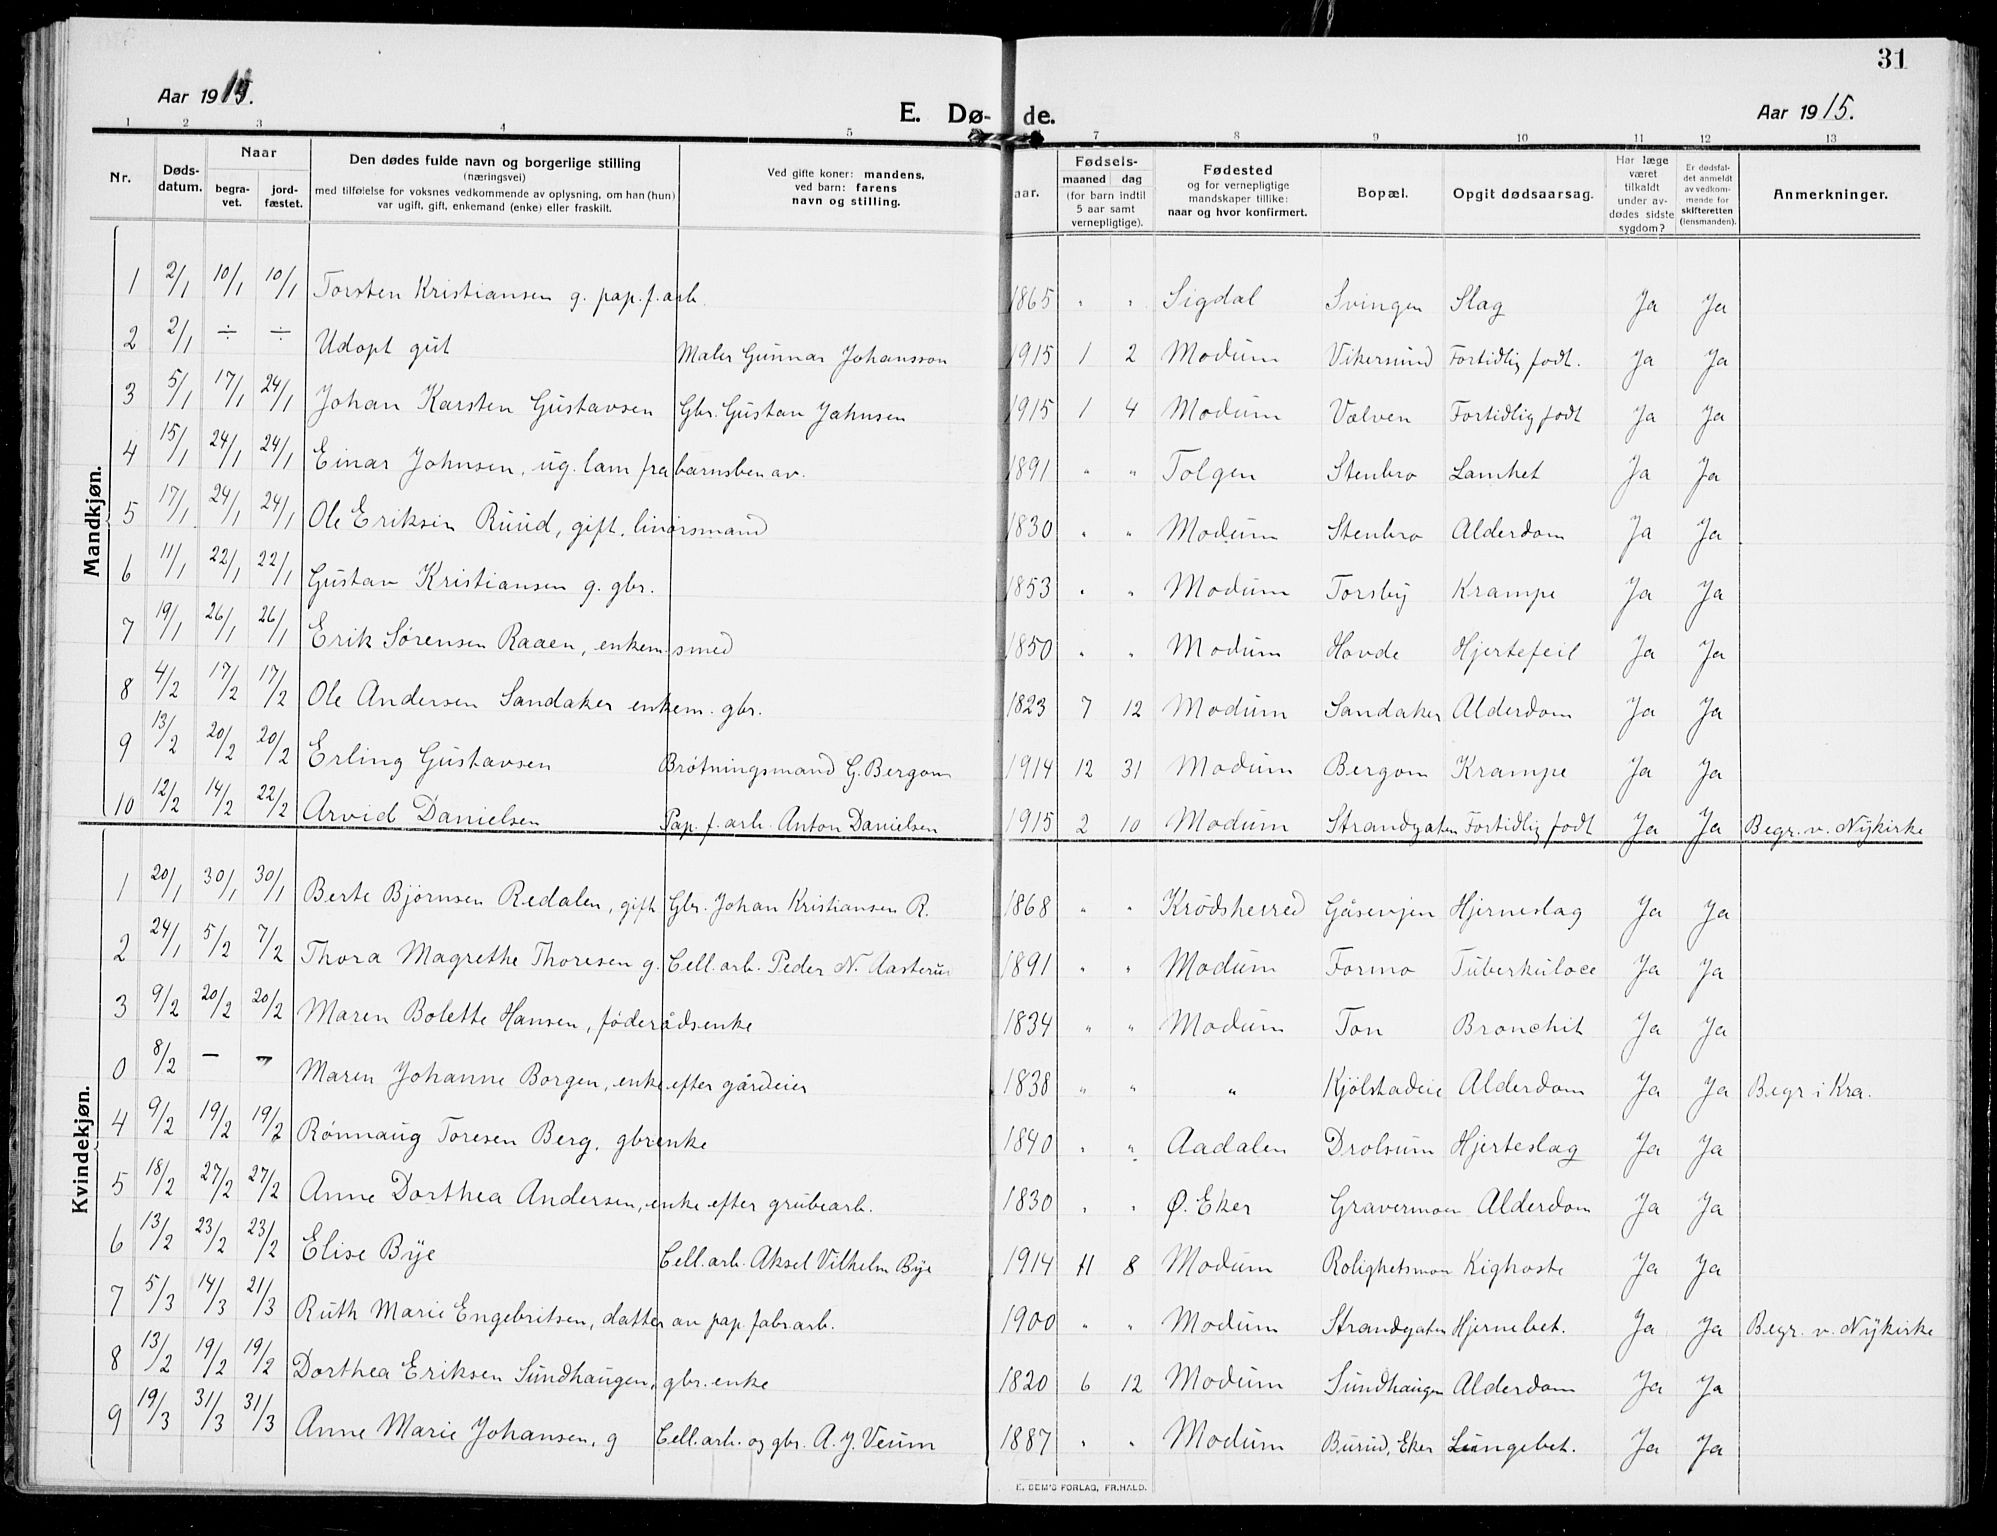 31
Aar 1915.
E. Døde.
Aar 1915.
1 2 3 4 5 7 8 9 10 11 12 13
Nr. | Dødsdatum. | Naar begravet. | jordfæstet. | Den dødes fulde navn og borgerlige stilling (næringsvei) med tilføielse for voksnes vedkommende av oplysning, om han (hun) var ugift, gift, enkemand (enke) eller fraskilt. | Ved gifte koner: mandens, ved barn: farens navn og stilling. | aar. | Fødsels- maaned dag (for barn indtil 5 aar samt vernepligtige). | Fødested og for vernepligtige mandskaper tillike: naar og hvor konfirmert. | Bopæl. | Opgit dødsaarsag. | Har læge været tilkaldt under avdødes sidste sygdom? | Er dødsfaldet anmeldt av vedkommende for skifteretten (lensmanden). | Anmerkninger.
Mandkjøn.
1 2/1 10/1 10/1 Torsten Kristiansen g. pap. f. arb. 1865 " " Sigdal Svingen Slag Ja Ja
2 2/1 ÷ ÷ Udøpt gut Maler Gunnar Johansson 1915 1 2 Modum Vikersund Fortidlig født. Ja Ja
3 5/1 17/1 24/1 Johan Karsten Gustavsen Gbr. Gustav Jahnsen 1915 1 4 Modum Vælven Fortidlig født Ja Ja
4 15/1 24/1 24/1 Einar Johnsen, ug. lam fra barnsben av. 1891 " " Tolgen Stenbro Lamhet Ja Ja
5 17/1 24/1 24/1 Ole Eriksen Ruud, gift. 1830 " " Modum Stenbro Alderdom Ja Ja
6 11/1 22/1 22/1 Gustav Kristiansen g. gbr. 1853 " " Modum Torsby Krampe Ja Ja
7 19/1 26/1 26/1 Erik Sørensen Raaen, enkem. smed 1850 " " Modum Hovde Hjertefeil Ja Ja
8 4/2 17/2 17/2 Ole Andersen Sandaker enkem. gbr. 1823 7 12 Modum Sandaker Alderdom Ja Ja
9 13/2 20/2 20/2 Erling Gustavsen Brøtningsmand G. Bergom 1914 12 31 Modum Bergom Krampe Ja Ja
10 12/2 14/2 22/2 Arvid Danielsen Pap. f. arb. Anton Danielsen 1915 2 10 Modum Strandgaten Fortidlig født Ja Ja Begr. v. Nykirke
Kvindekjøn.
1 20/1 30/1 30/1 Berte Bjørnsen Redalen, gift Gbr. Johan Kristiansen R. 1868 " " Krødsherred Gåsevjen Hjerneslag Ja Ja
2 24/1 5/2 7/2 Thora Magrethe Thoresen g. Cell. arb. Peder N. Aasterud 1891 " " Modum Formo Tuberkuloce Ja Ja
3 9/2 20/2 20/2 Maren Bolette Hansen, føderådsenke 1834 " " Modum Ton Bronchit Ja Ja
0 8/2 — — Maren Johanne Borgen, enke efter gårdeier 1838 " " " Kjölstadeie Alderdom Ja Ja Begr i Kra.
4 9/2 19/2 19/2 Rønnaug Toresen Berg, gbrenke 1840 " " Aadalen Drolsum Hjerteslag Ja Ja
5 18/2 27/2 27/2 Anne Dorthea Andersen, enke efter grubearb. 1830 " " Ø. Eker Gravermoen Alderdom Ja Ja
6 13/2 23/2 23/2 Elise Bye Cell. arb. Aksel Vilhelm Bye 1914 11 8 Modum Rolighetsmoen Kighoste Ja Ja
7 5/3 14/3 21/3 Ruth Marie Engebritsen, datter av pap. fabr. arb. 1900 " " Modum Strandgaten Hjernebet. Ja Ja Begr. v. Nykirke
8 13/2 19/2 19/2 Dorthea Eriksen Sundhaugen, gbr. enke 1820 6 12 Modum Sundhaugen Alderdom Ja Ja
9 19/3 31/3 31/3 Anne Marie Johansen, g Cell. arb. og gbr. A. J. Veum 1887 " " Modum Burud, Eker Lungebet. Ja Ja
E. SEM'S FORLAG, FR.HALD.